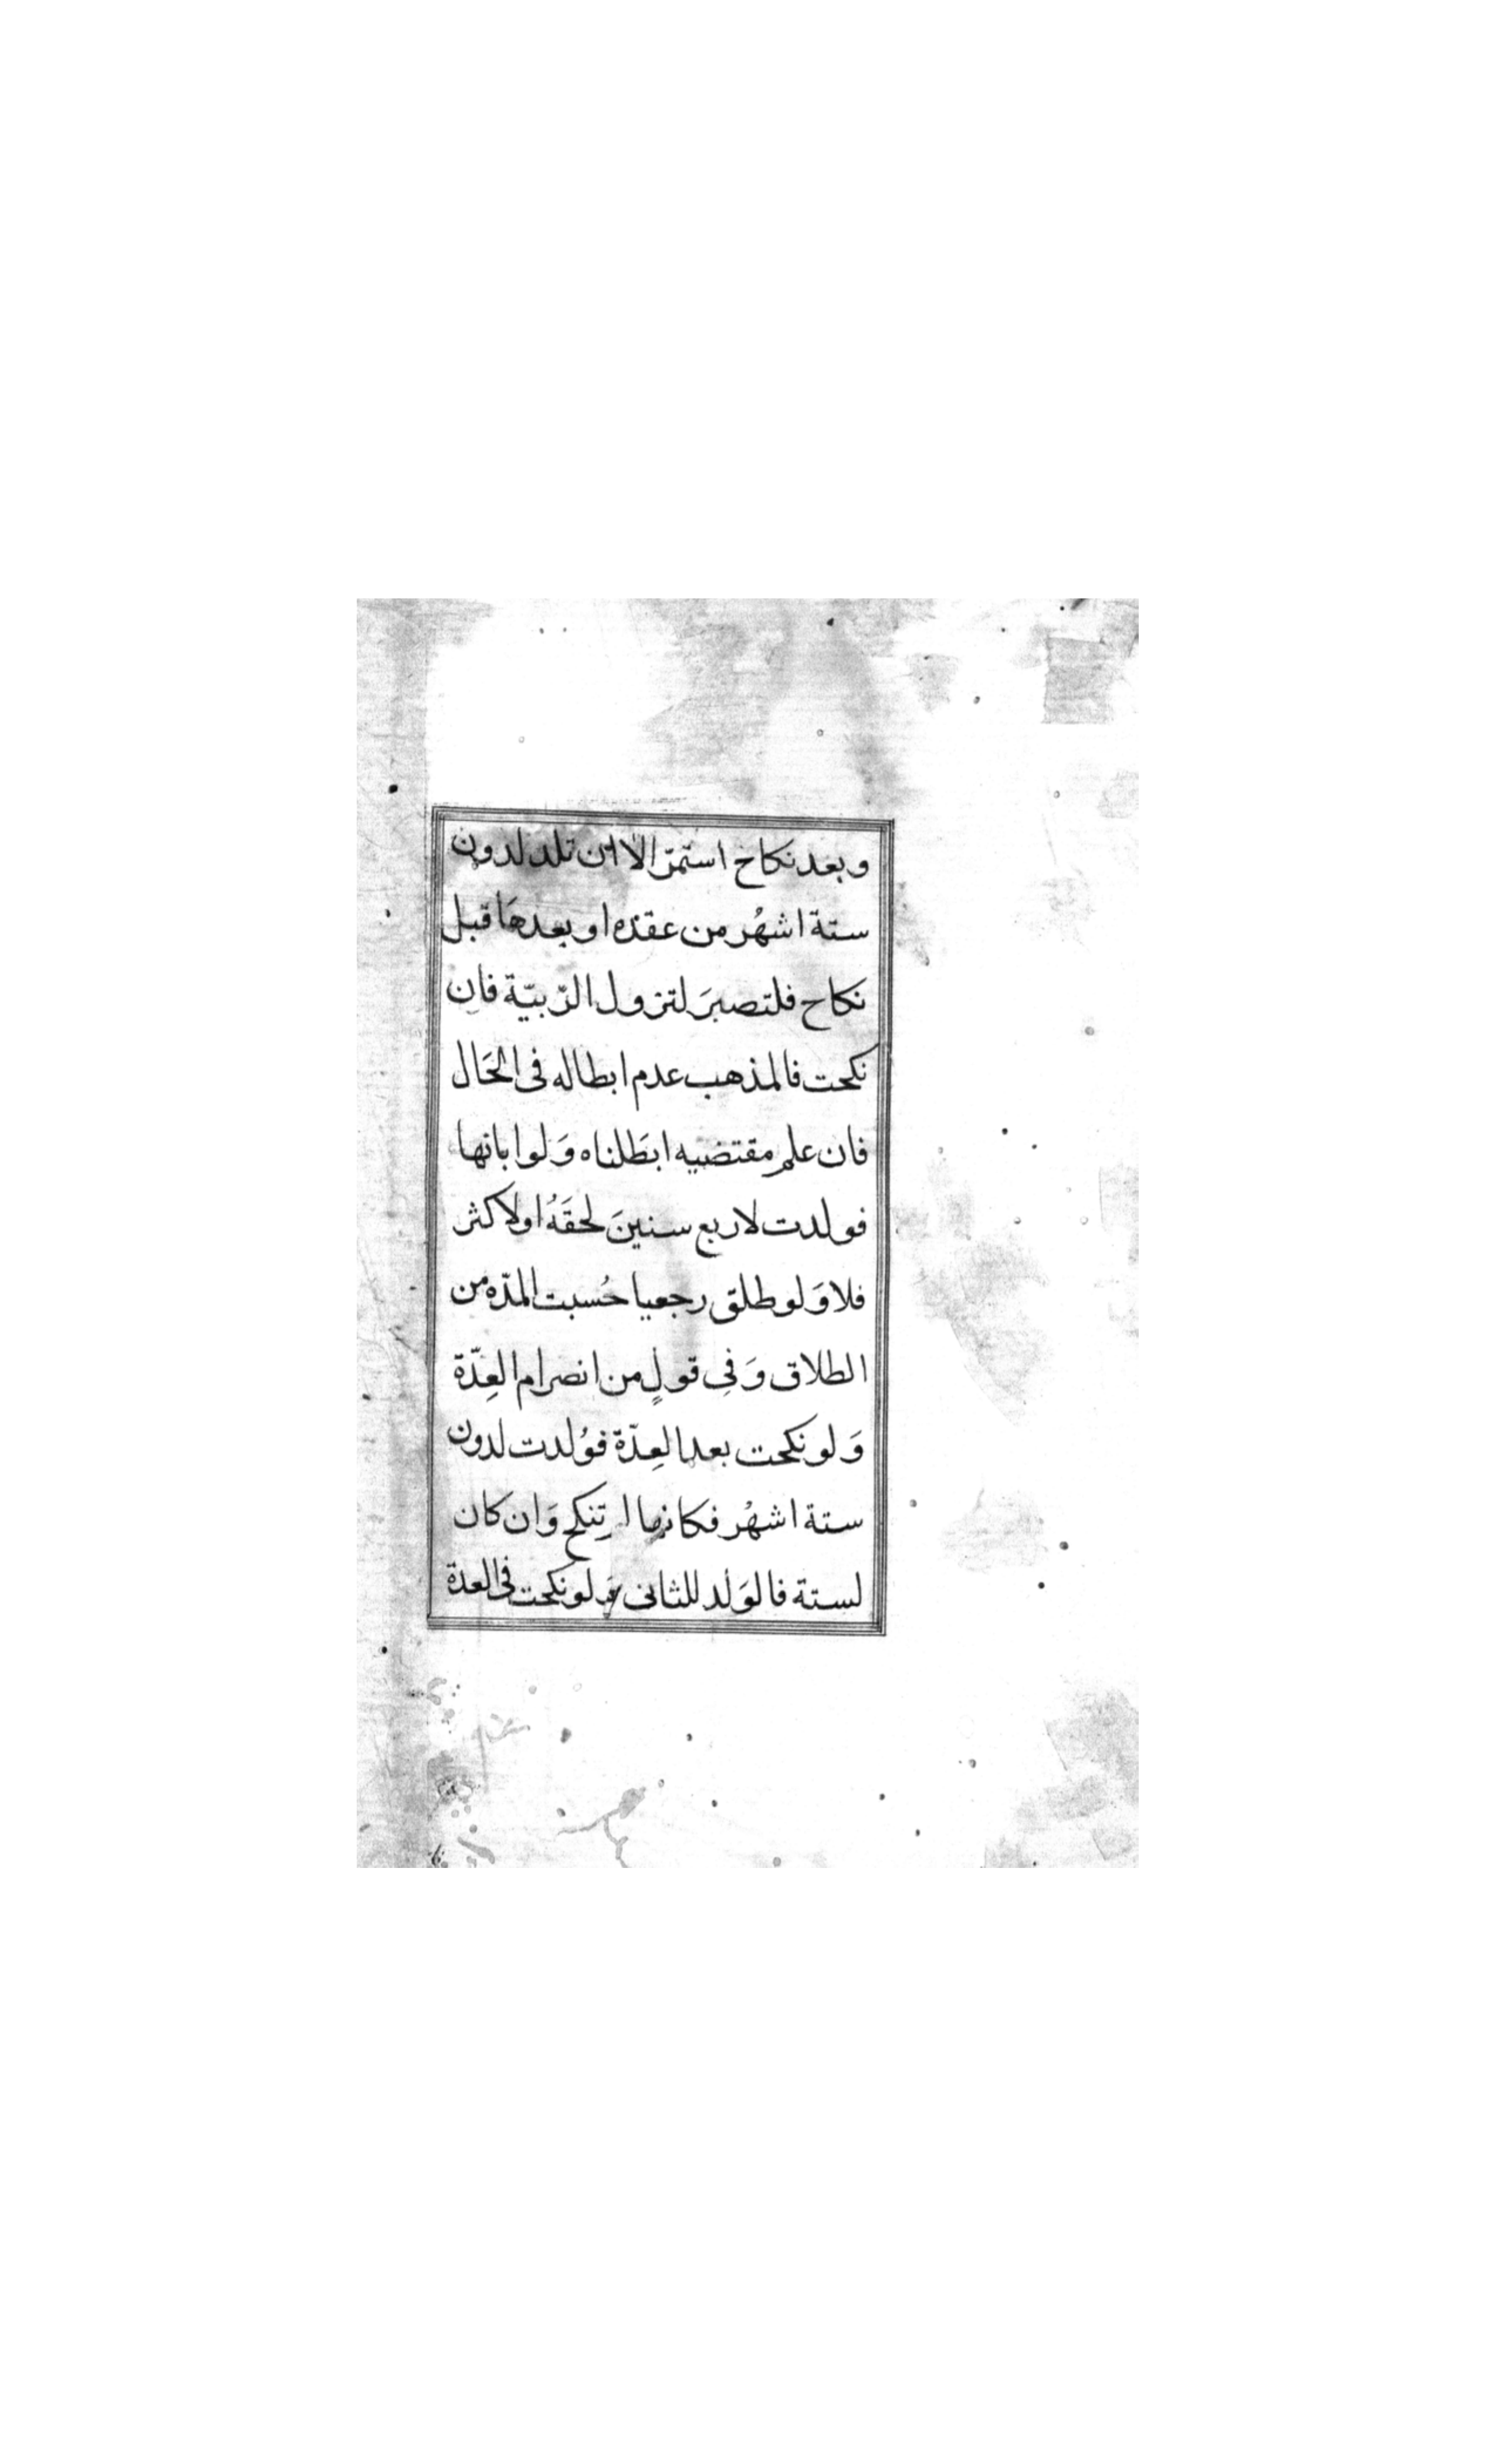 وبعد نكاح استمرّ الا ان تلد لدون
ستة اشهُر من عقده او بعدهَا قبل
نكاح فلتصبرَ لتزول الرّيبيّة فان
نكحت فالمذهب عدم ابطاله فى الحَال
فان علم مقتضيه ابطَلناه وَلو ابانها
فولدت لاربع سنينَ لحقَهُ او لاكثر
فلا وَلو طلق رجعيا حُسبت المدّه من
الطلاق وَفِى قولٍ من انصرام العِدّة
وَلو نكحت بعد العِدّة فوُلدت لدون
ستة اشهُر فكانها لم تنكح وَان كان
لستة فالوَلد للثانى وَلو نكحت فى العدة